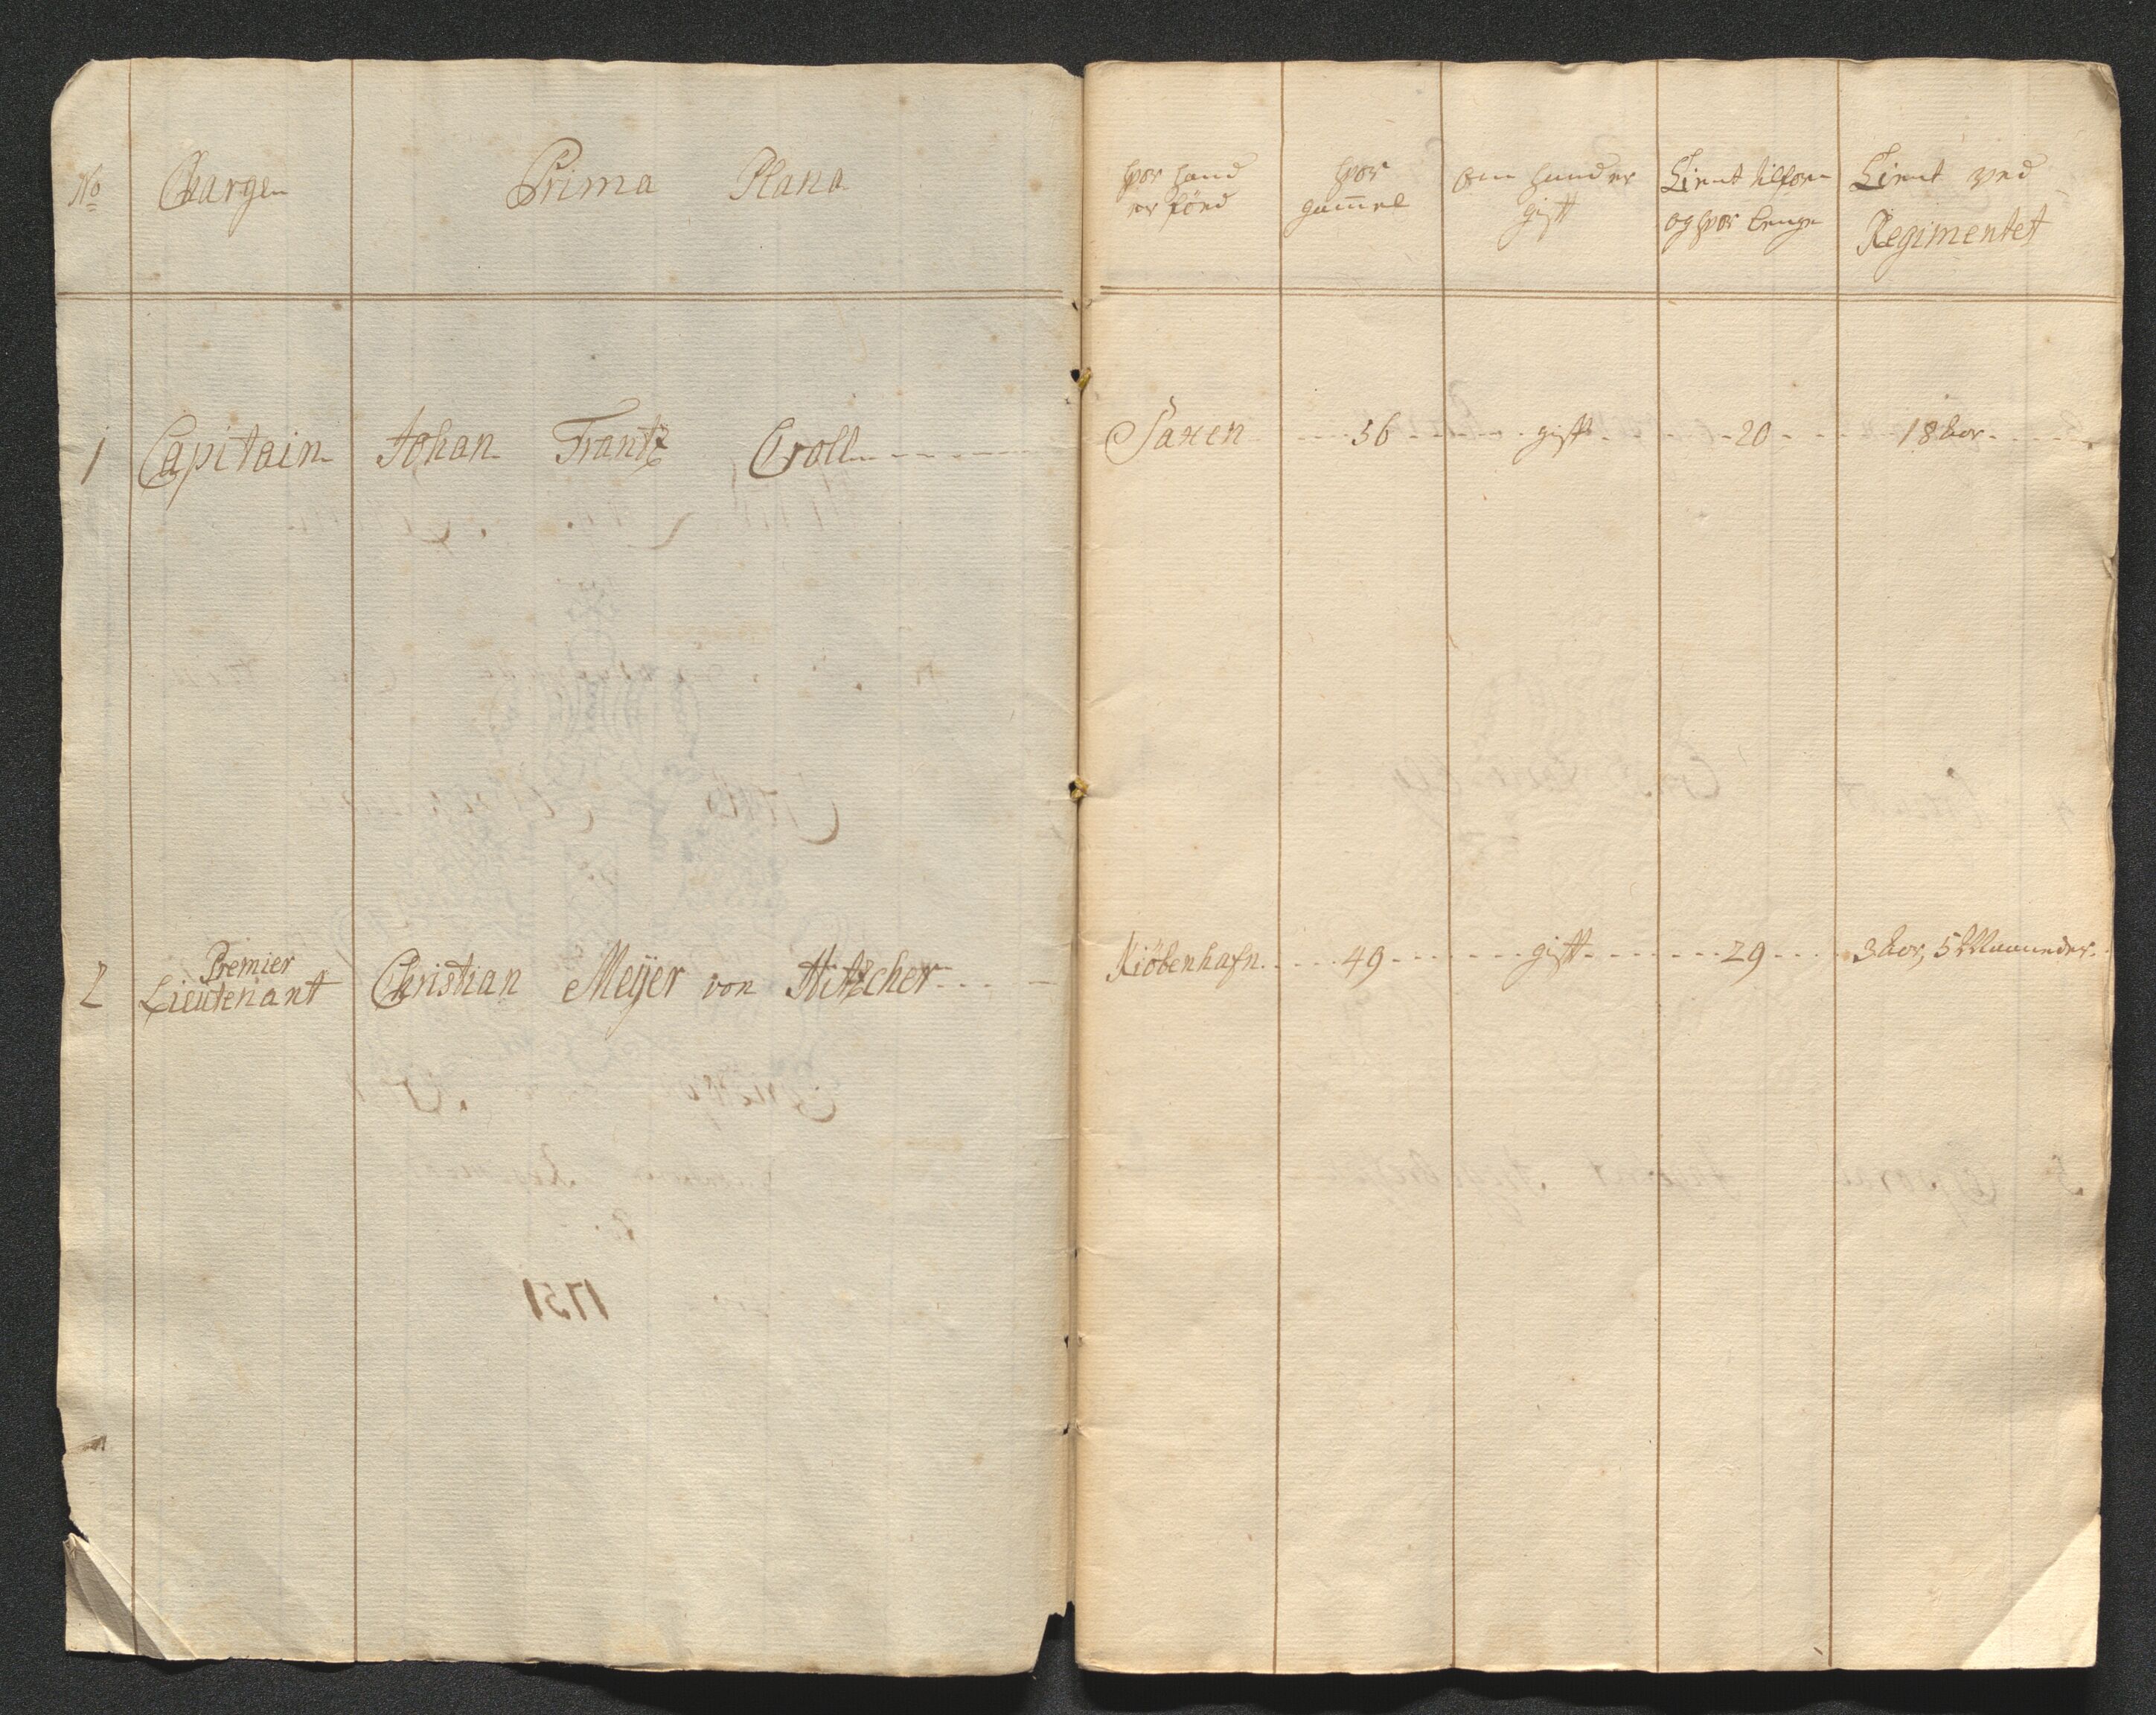 No Chargen Prima Plana hvor hand er föed hvor gam̄el om hand er gift Tient tilforn og hvor lenge Tient ved Regimentet
1 Capitain Johan Frantz Croll Saxen 56 gift 20 18 Aar
2 Premier Lieutenant Christian Meÿer von Hitzcher Kiöbenhafn 49 gift 29 3 Aar, 5 Maaneder
1751